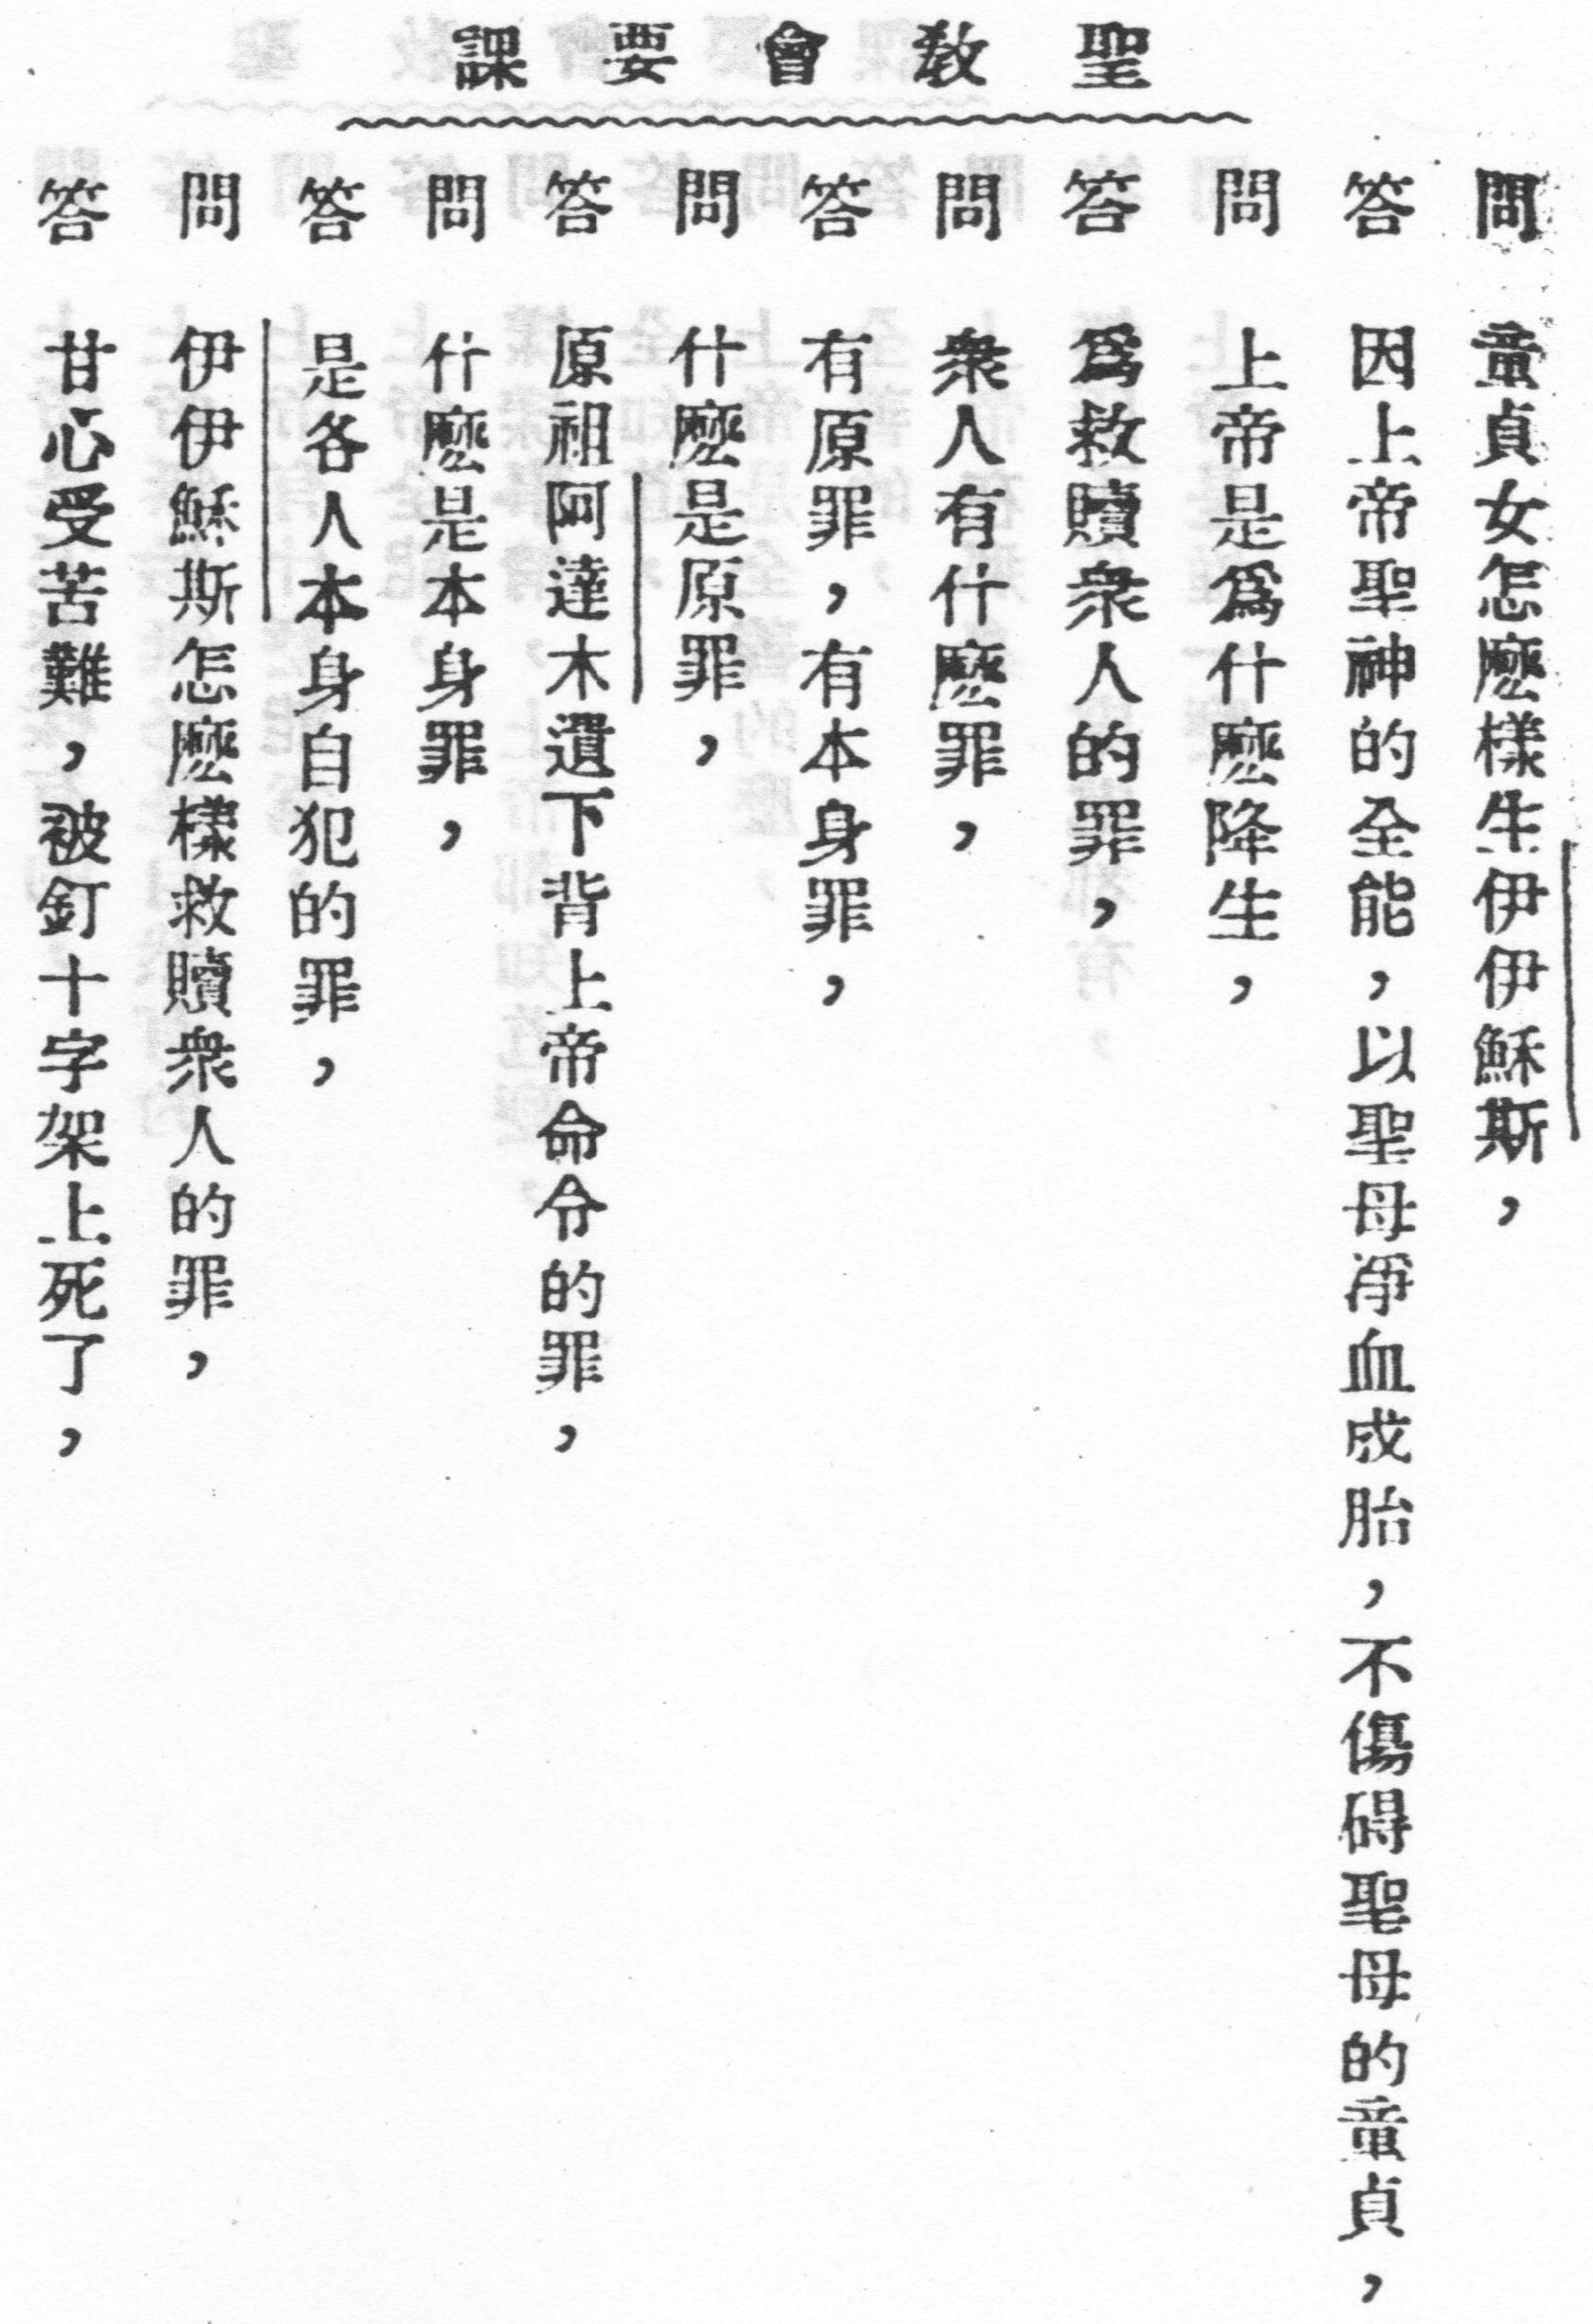 聖教會要課
問 童貞女怎麼樣生伊伊穌斯，
答 因上帝聖神的全能，以聖母淨血成胎，不傷碍聖母的童貞，
問 上帝是爲什麼降生，
答 爲救贖衆人的罪，
問 衆人有什麼罪，
答 有原罪，有本身罪，
問 什麼是原罪，
答 原祖阿達木遺下背上帝命令的罪，
問 什麼是本身罪，
答 是各人本身自犯的罪，
問 伊伊穌斯怎麼樣救贖衆人的罪，
答 甘心受苦難，被釘十字架上死了，